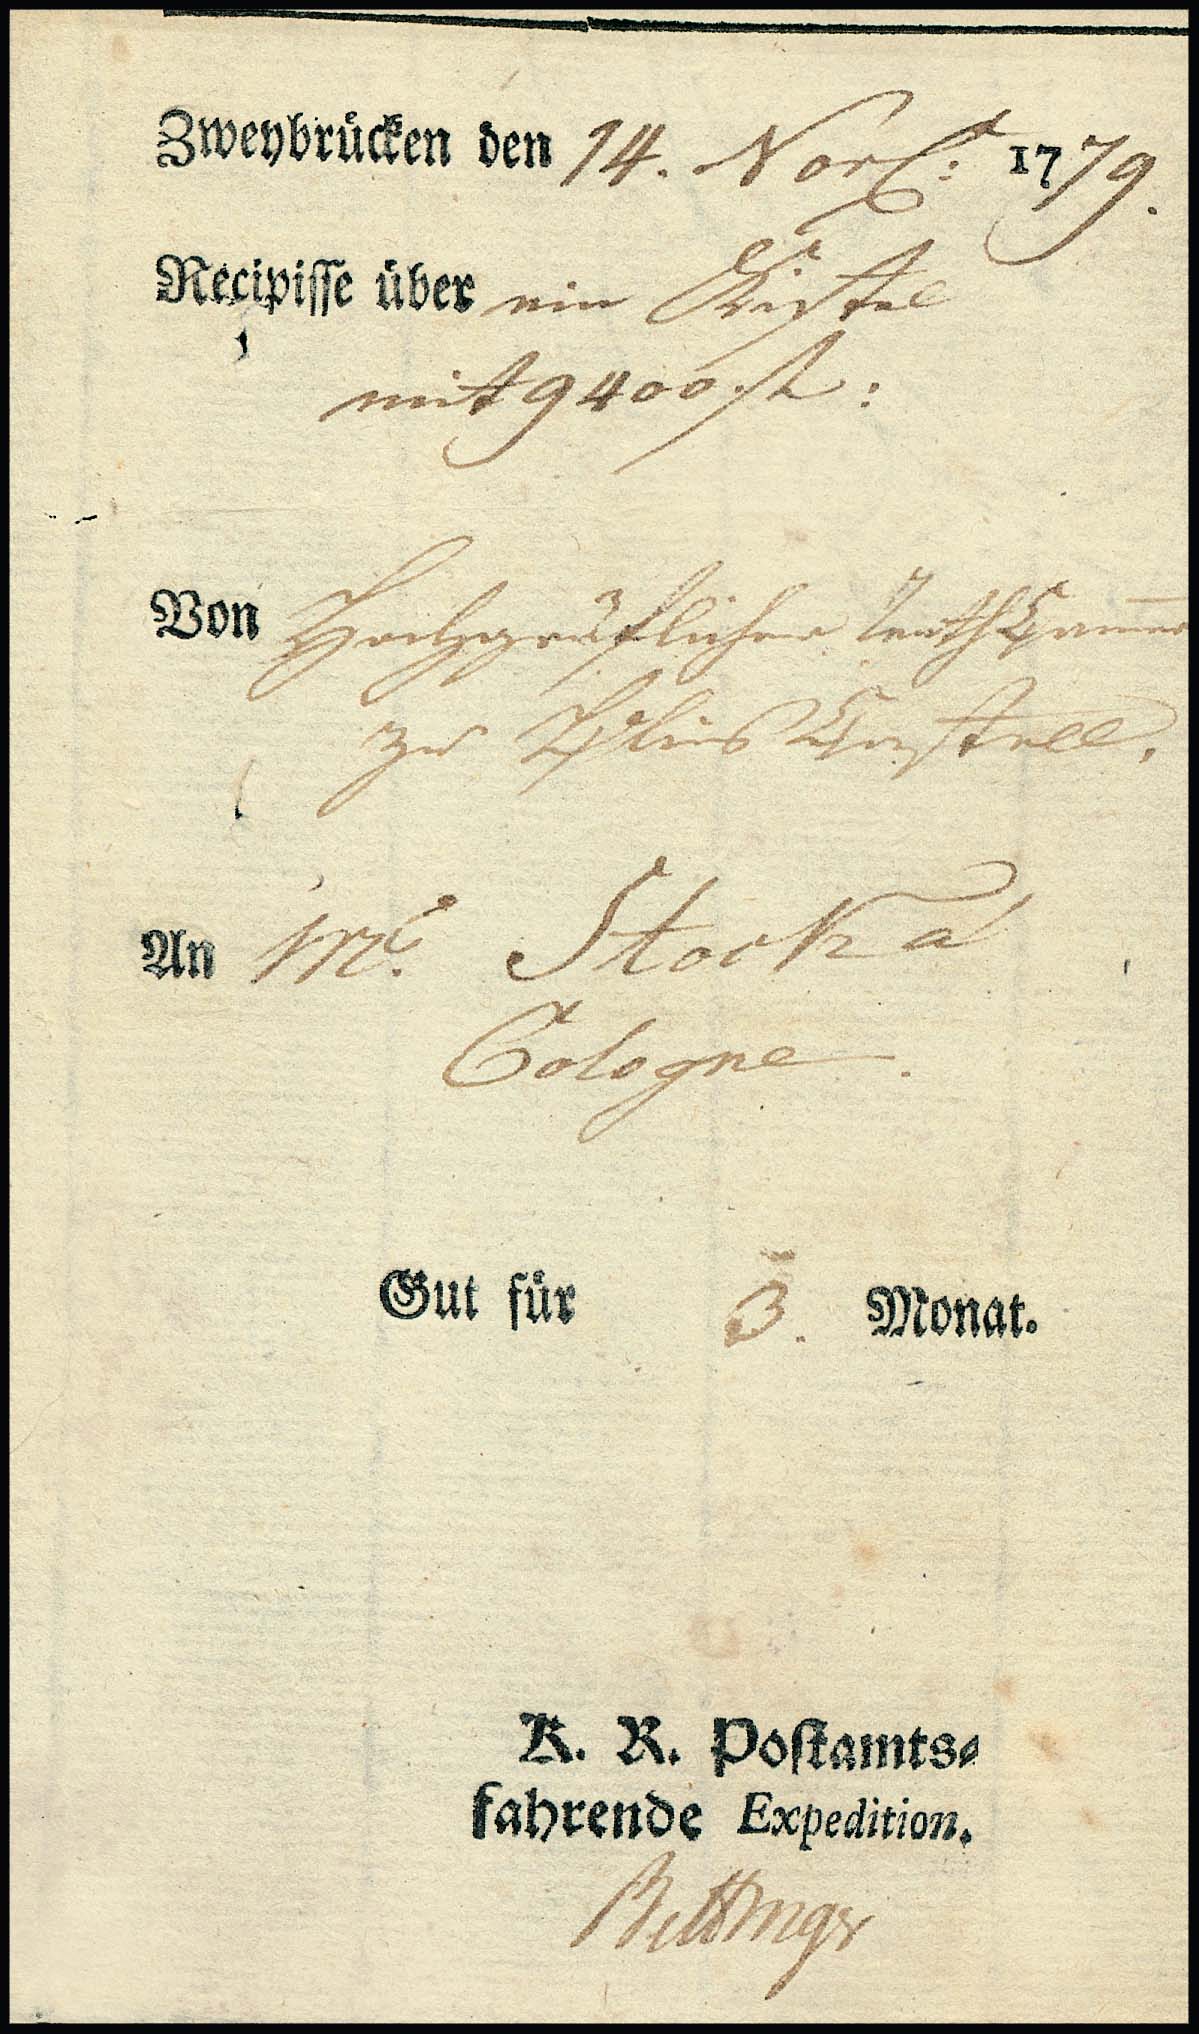 Zweybrücken den 14. Novbr: 1779.
Recipisse über ein Kistel
mit 9400 fl:
Von Hochgräflicher Renth Cammer
zu Blies Castell.
An Mr. Stock a
Cologne.
Gut für 3. Monat.
K. R. Postamts-
fahrende Expedition.